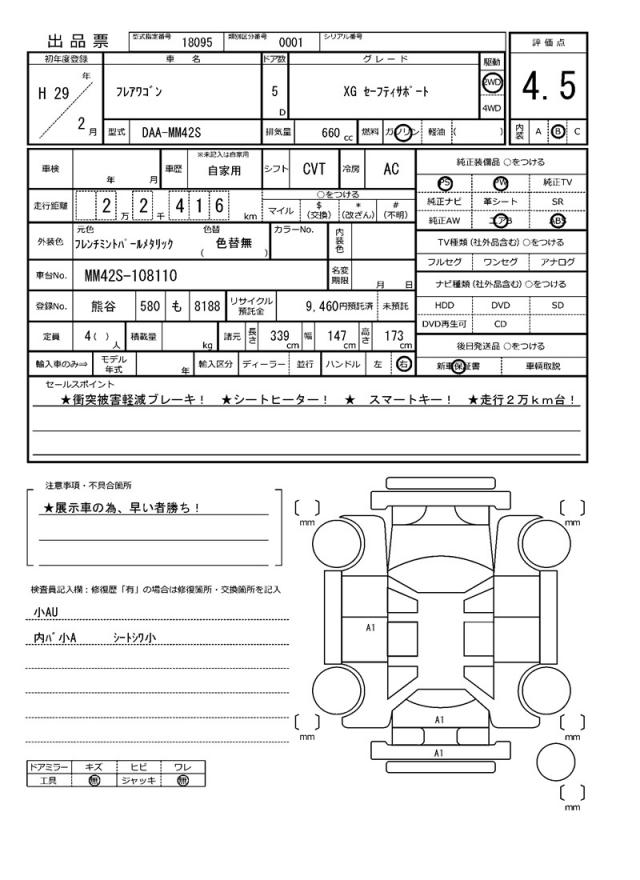 出品票 型式指定番号 18095 類別区分番号 0001 シリアル番号
初年度登録 車名 ドア数 グレード 駆動 評価点
H 29 年 2 月 フレアワゴン 5 D XG セーフティサポート 2WD 4WD 4.5
型式 DAA-MM42S 排気量 660 cc 燃料 ガソリン 軽油 ( ) 内装 A B C
車検 年 月 車歴 ※未記入は自家用 自家用 シフト CVT 冷房 AC 純正装備品 ○をつける
PS PW 純正TV
走行距離 2 万 2 千 4 1 6 km ○をつける 純正ナビ 革シート SR
マイル $ (交換) * (改ざん) # (不明) 純正AW エアB ABS
外装色 元色 フレンチミントパールメタリック 色替 ( 色替無 ) カラーNo. 内装色 TV種類 (社外品含む) ○をつける
フルセグ ワンセグ アナログ
車台No. MM42S-108110 名変期限 月 日 ナビ種類 (社外品含む) ○をつける
登録No. 熊谷 580 も 8188 リサイクル預託金 9,460円預託済 未預託 HDD DVD SD
DVD再生可 CD
定員 4( ) 人 積載量 kg 諸元 長さ 339 cm 幅 147 cm 高さ 173 cm 後日発送品 ○をつける
輸入車のみ⇒ モデル年式 年 輸入区分 ディーラー 並行 ハンドル 左 右 新車保証書 車輌取説
セールスポイント
★衝突被害軽減ブレーキ! ★シートヒーター! ★ スマートキー! ★走行2万km台!
注意事項・不具合箇所
★展示車の為、早い者勝ち!
検査員記入欄:修復歴「有」の場合は修復箇所・交換箇所を記入
小AU
内バ小A シートシワ小
ドアミラー キズ ヒビ ワレ
工具 無 ジャッキ 無
[ ] mm [ ] mm
A1
A1
[ ] mm [ ] mm
A1
[ ] mm